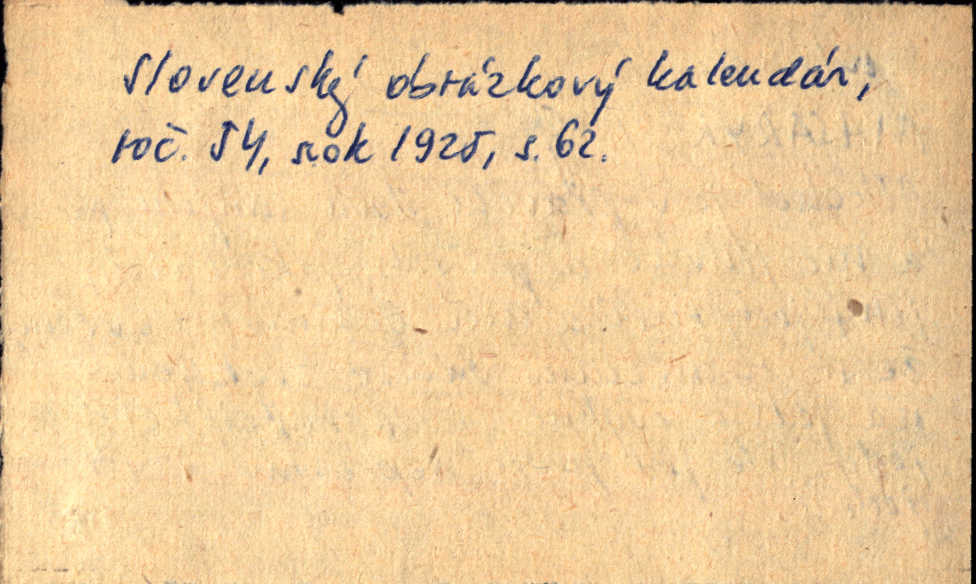 Slovenský obrázkový kalendár,
roč. 54, rok 1925, s. 62.